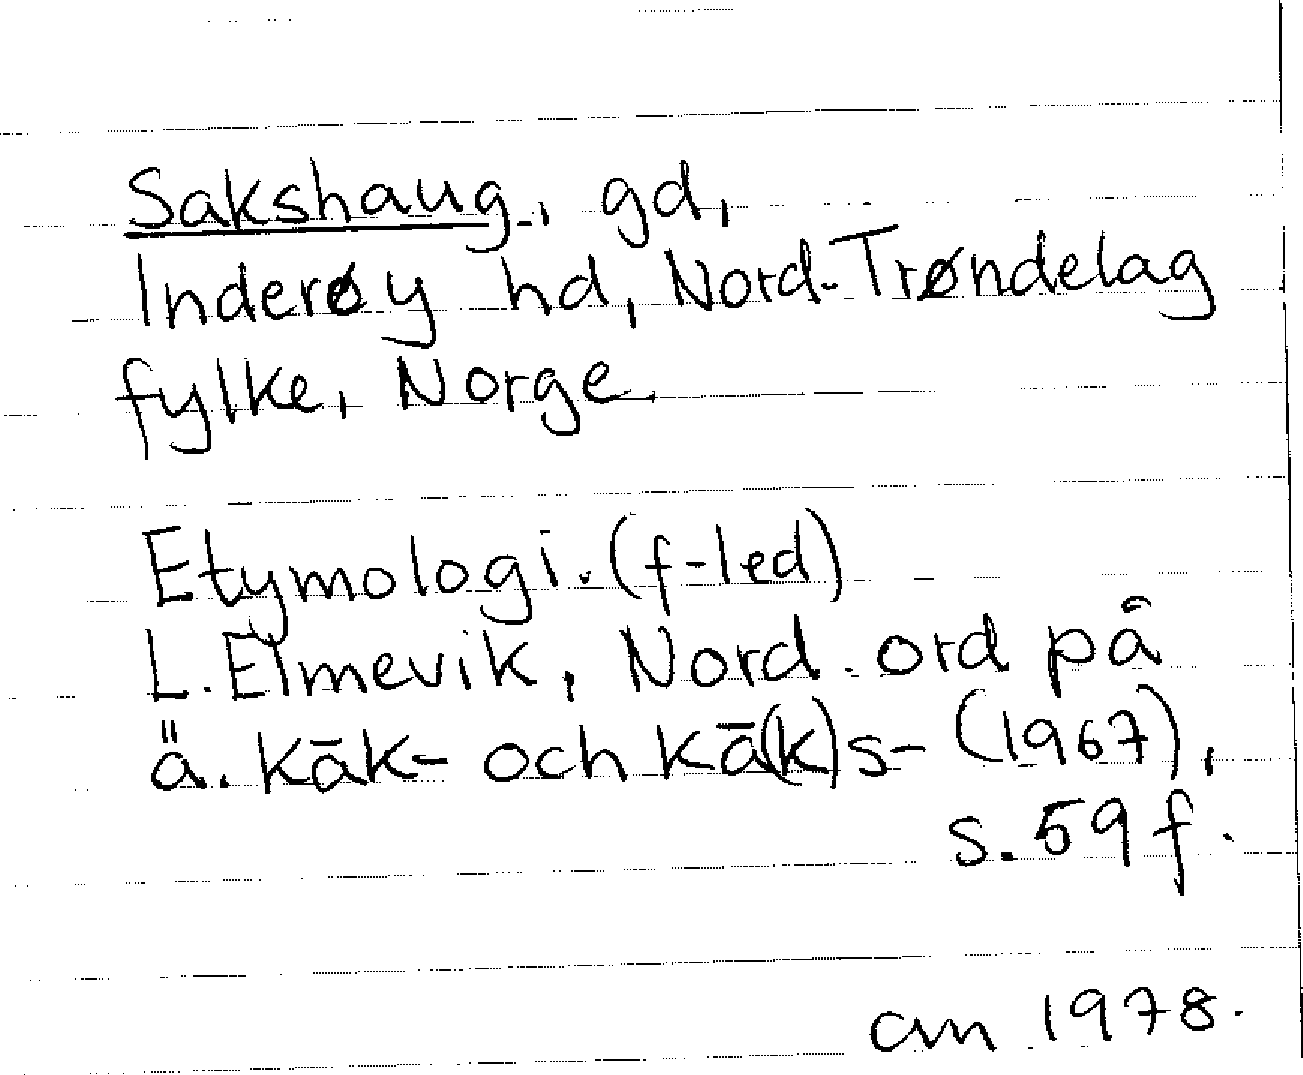 Sakshaug, gd,
Inderøy hd, Nord-Trøndelag
fylke, Norge.
Etymologi. (f-led)
L. Elmevik, Nord. ord på
ä. kāk- och kā(k)s- (1967),
s. 59 f.
am 1978.